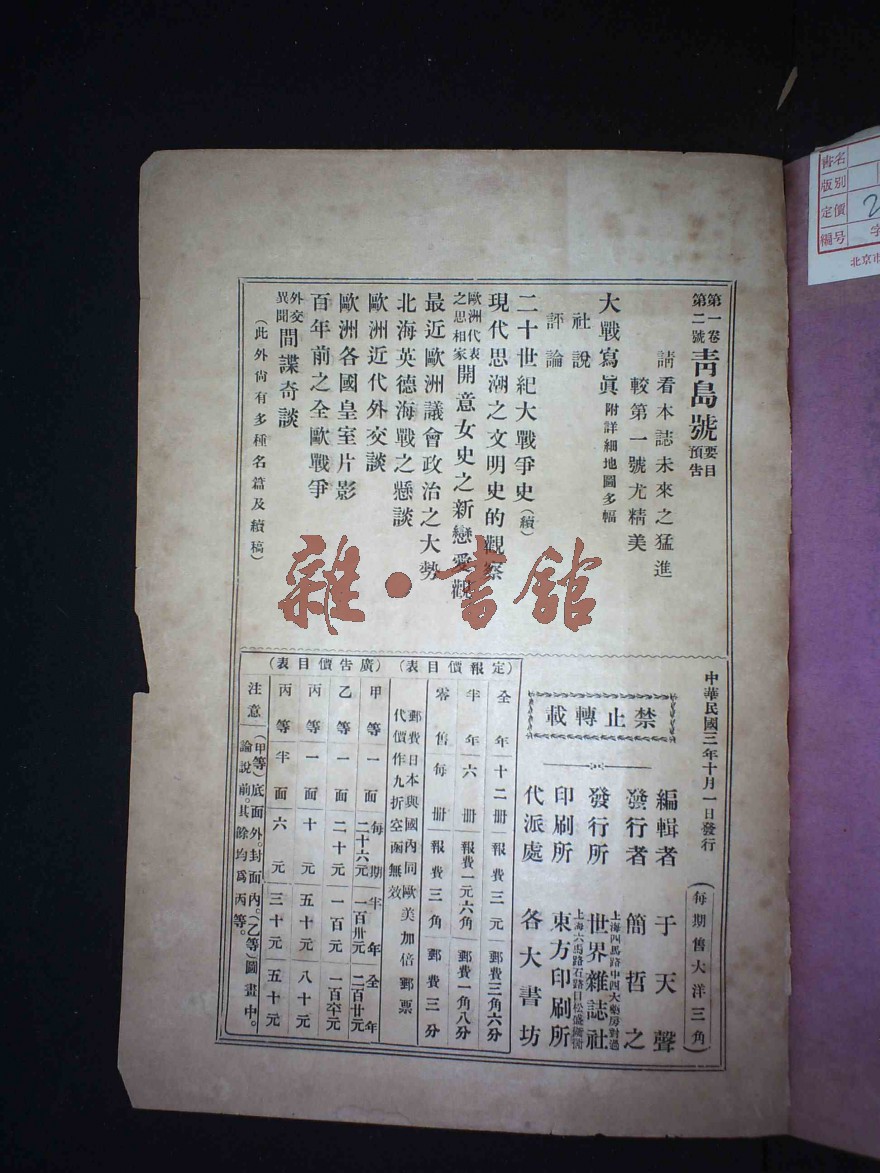 第一卷
第二號
靑島號
要目
預吿
請看本誌未來之猛進
較第一號尤精美
大戰寫眞 附詳細地圖多幅
社說
評論
二十世紀大戰爭史(續)
現代思潮之文明史的觀察
歐洲代表
之思相家
開意女史之新戀愛觀
最近歐洲議會政治之大勢
北海英德海戰之懸談
歐洲近代外交談
歐洲各國皇室片影
百年前之全歐戰爭
外交
異聞
間諜奇談
(此外尙有多種名篇及續稿)
中華民國三年十月一日發行
(每期售大洋三角)
禁止轉載
編輯者 于天聲
發行者 簡哲之
上海四馬路中四大藥房對過
發行所 世界雜誌社
印刷所 東方印刷所
代派處 各大書坊
(定報價目表)
全年十二冊 報費三元 郵費三角六分
半年六冊 報費一元六角 郵費一角八分
零售每冊 報費三角 郵費三分
郵費日本與國內同歐美加倍郵票
代價作九折空函無效
(廣告價目表)
甲等 一面 每期二十六元 半年一百卅元 全年二百廿元
乙等 一面 二十元 一百元
丙等 一面 十元 五十元 八十元
丙等 半面 六元 三十元 五十元
注意 (甲等)底面外。封面內。(乙等)圖畫中。
論說前。其餘均爲丙等。
雜·書館
書名
版別
定價
編号
北京市